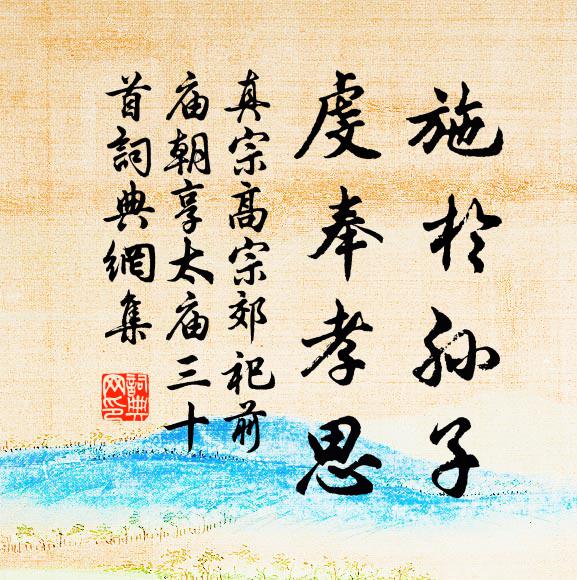 施於孙子
虔奉孝思
真宗高宗郊祀前
庙朝享太庙三十
首詞典網集
詞典
网印